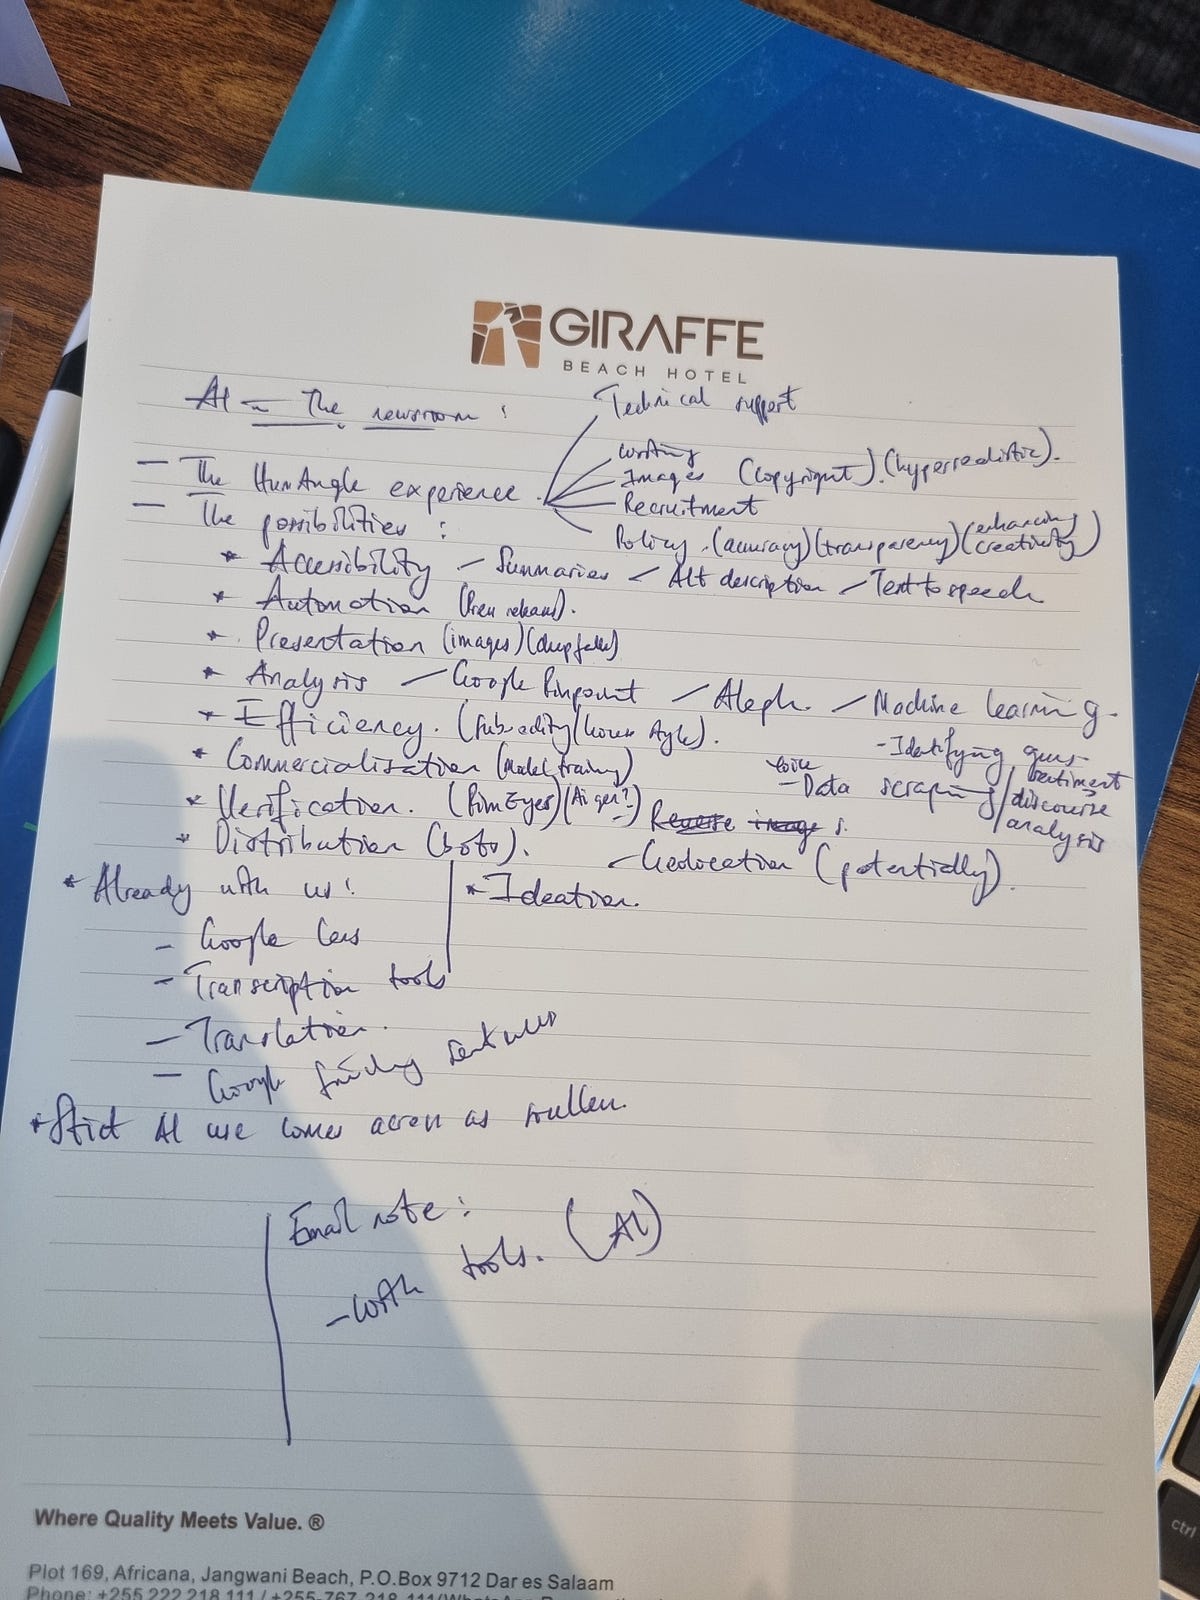 GIRAFFE
BEACH HOTEL
AI in the newsroom:
Technical support
- The HumAngle experience
Writing
Images (copyright) (hyperrealistic).
Recruitment
Policy. (accuracy) (transparency) (enhancing creativity)
- The possibilities:
* Accessibility - Summaries - Alt description - Text to speech
* Automation
* Presentation (images) (deepfakes)
* Analysis - Google Pinpoint - Aleph. - Machine learning.
- Identifying guns
- Data scraping / sentiment / discourse analysis
* Efficiency. (sub-editing/house style).
* Commercialisation (Model training)
* Verification. (PimEyes) (AI gen?) Reverse image s.
- Geolocation (potentially).
* Distribution (bots).
* Already with us:
- Google Lens
- Transcription tools
- Translation.
- Google
* Ideation.
* Strict AI use comes across as
Email note:
- with tools. (AI)
Where Quality Meets Value. ®
Plot 169, Africana, Jangwani Beach, P.O.Box 9712 Dar es Salaam
Phone: +255 222 218 111 / +255-767-218-111
ctrl